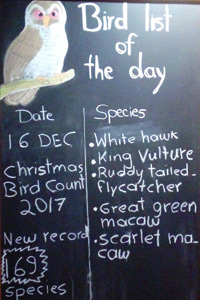 Bird list
of
the day
Date
16 DEC
Christmas
Bird Count
2017
New record
169
species
Species
• White hawk
• King Vulture
• Ruddy tailed-
flycatcher
• Great green
macaw
• scarlet ma-
caw